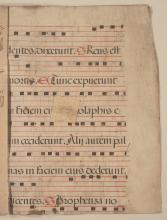 dentes dixerunt. Reus est
mortis. Tunc expuerunt
in faciem ei colaphis c
um ceciderunt. Alij autem pal
mas in faciem eius dederunt.
dicentes. Prophetiza no